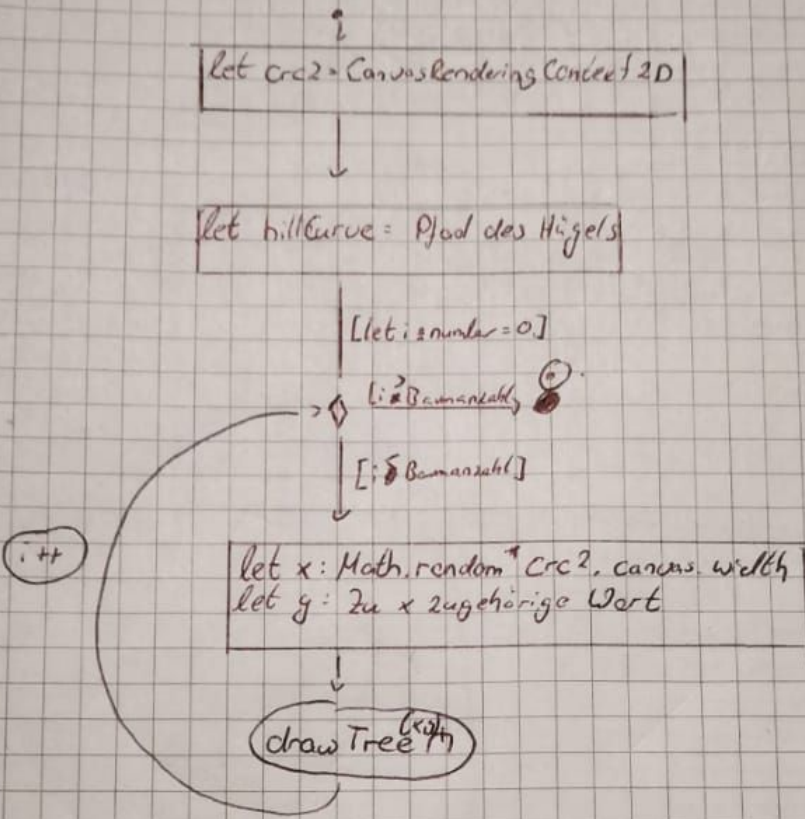 let crc2 = CanvasRenderingContext2D
let hillCurve = Pfad des Hügels
[let i: number = 0]
Baumanzahl
Baumanzahl]
i++
let x: Math.random * crc2.canvas.width
let y: Zu x zugehörige Wert
drawTree